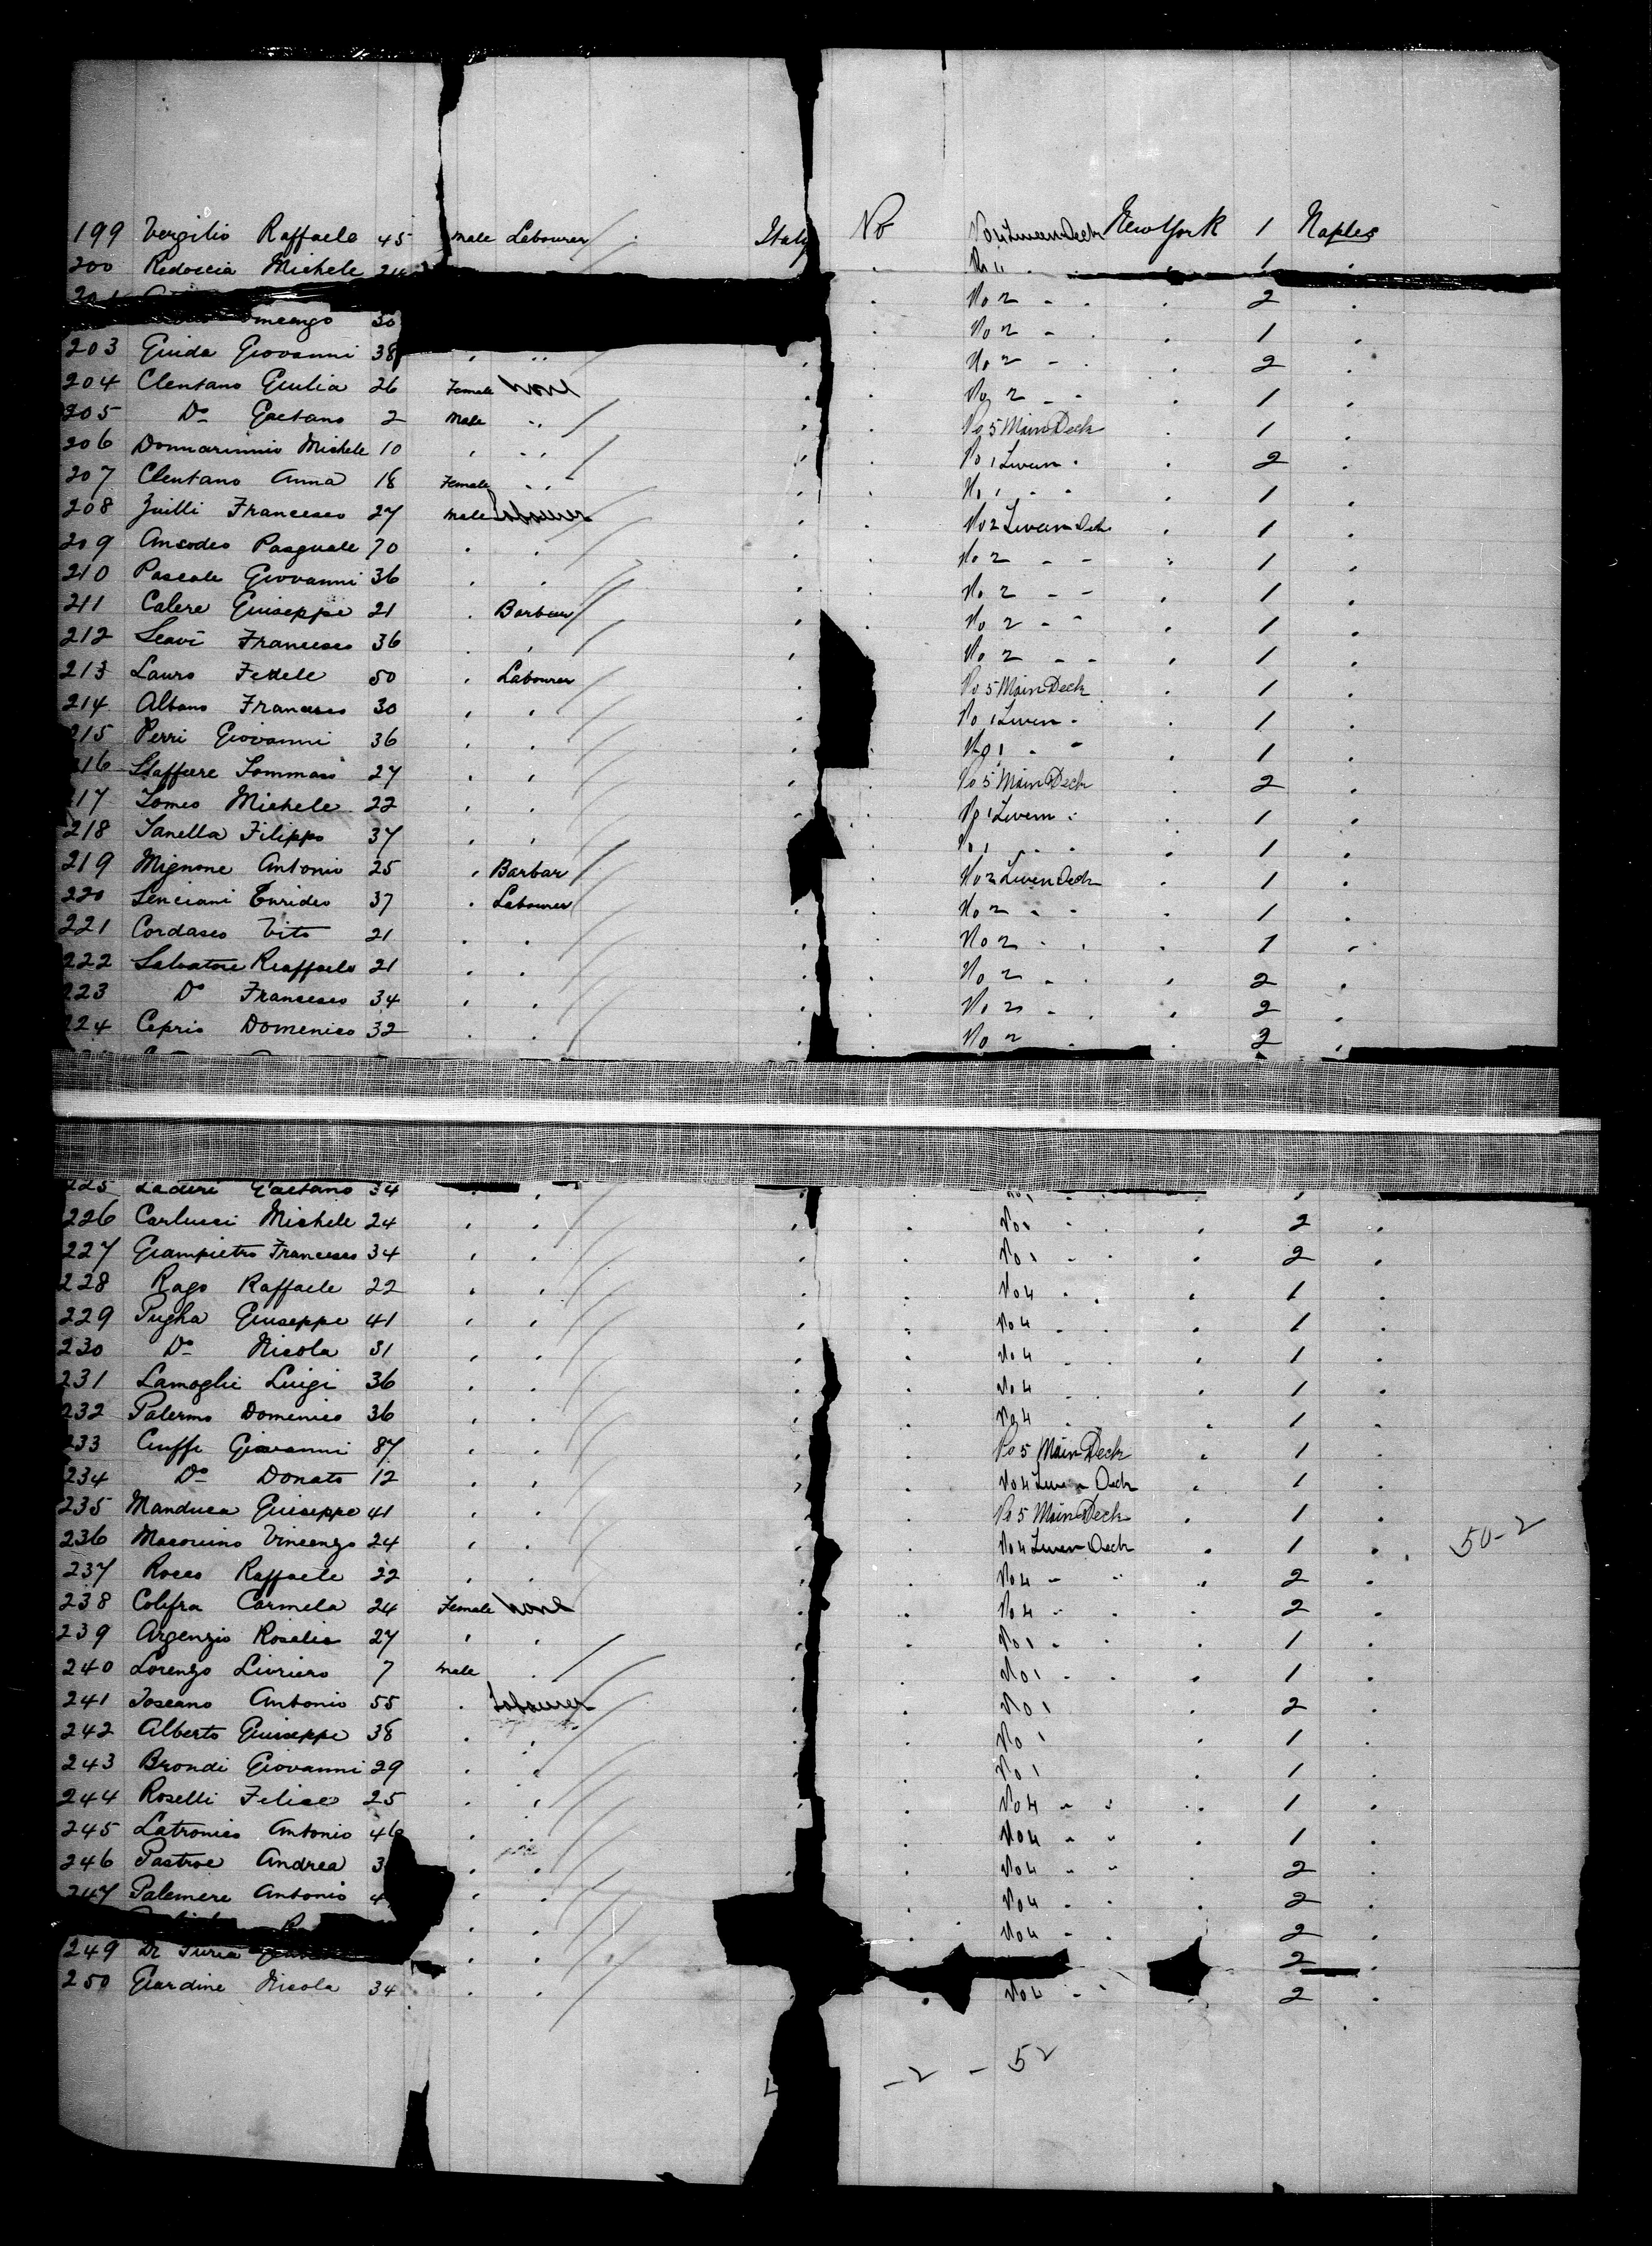 199 Vergilio Raffaele 45 Male Labourer Italy No No 4 Tween Deck New York 1 Naples
200 Redoccia Michele No 4 1
201 No 2 2
Vincenzo 30 No 2 1
203 Guida Giovanni 38 No 2 2
204 Clentano Giulia 26 Female None No 2 1
205 Do Gaetano 2 Male No 5 Main Deck 1
206 Donnarinnio Michele 10 No 1 Tween 2
207 Clentano Anna 18 Female No 1 1
208 Zuilli Francesco 27 Male Labourer No 2 Tween Deck 1
209 Ansodeo Pasquale 70 No 2 1
210 Pascale Giovanni 36 No 2 1
211 Calere Guiseppe 21 Barbar No 2 1
212 Scavi Francesco 36 No 2 1
213 Lauro Fedele 50 Labourer No 5 Main Deck 1
214 Albano Francesco 30 No 1 Tween 1
215 Perri Giovanni 36 No 1 1
216 Staffiere Tommaso 27 No 5 Main Deck 2
217 Tomeo Michele 22 No 1 Tween 1
218 Tanella Filippo 37 No 1 1
219 Mignone Antonio 25 Barbar No 2 Tween Deck 1
220 Lenciani Enrideo 37 Labourer No 2 1
221 Cordasco Vito 21 No 2 1
222 Salvatore Reaffaele 21 No 2 2
223 Do Francesco 34 No 2 2
224 Cepris Domenico 32 No 2 2
225 Laderi Gaetano 34 No 1
226 Carlucci Michele 24 No 1 2
227 Giampietro Francesco 34 No 1 2
228 Rago Raffaele 22 No 4 1
229 Puglia Giuseppe 41 No 4 1
230 Do Nicola 31 No 4 1
231 Lamoglie Luigi 36 No 4 1
232 Palermo Domenico 36 No 4 1
233 Ciuffi Giovanni 37 No 5 Main Deck 1
234 Do Donato 12 No 4 Tween Deck 1
235 Manduca Guiseppe 41 No 5 Main Deck 1
236 Masorino Vincenzo 24 No 4 Tween Deck 1 50-2
237 Rocco Raffaele 22 No 4 2
238 Colifra Carmela 24 Female None No 4 2
239 Argenzio Roselia 27 No 1 1
240 Lorenzo Livriero 7 Male No 1 1
241 Toscano Antonio 55 Labourer No 1 2
242 Alberto Guiseppe 38 No 1 1
243 Brondi Giovanni 29 No 1 1
244 Roselli Felice 25 No 4 1
245 Latronico Antonio 46 No 4 1
246 Pastroe Andrea 3 No 4 2
247 Palemere Antonio 4 No 4 2
No 4 2
249 Di Turia 2
250 Giardine Nicola 34 No 4 2
-2 - 52